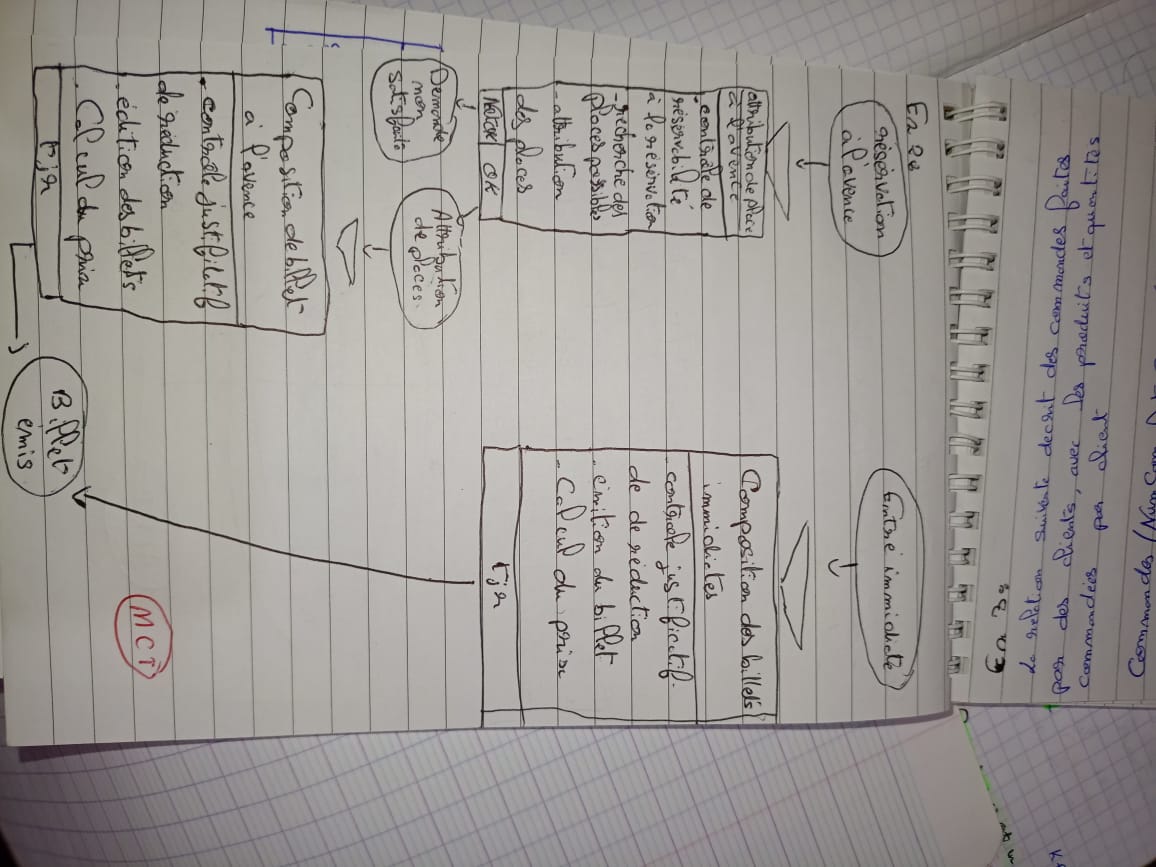 Commandes (Num Com
commandées par client
par des clients, avec les produits et quantités
La relation suivante decrit des commandes faites
Ex 3:
Ex 2:
réservation
à l'avence
Entré immidiate
attribution de place
à l'avence
- contrôle de
réservebilité
à la réservation
- recherche des
places possibles
- attribution
des places
Not OK OK
Demande
non
satisfaite
Attribution
de places.
Composition des billets
immidiates
- contrôle justificatif
de de réduction
- émition du billet
- Calcul du prix
tjr
Composition de billet
à l'avence
- contrôle justificatif
de réduction
. édition des billets
. Calcul du prix
tjr
Billet
émis
MCT